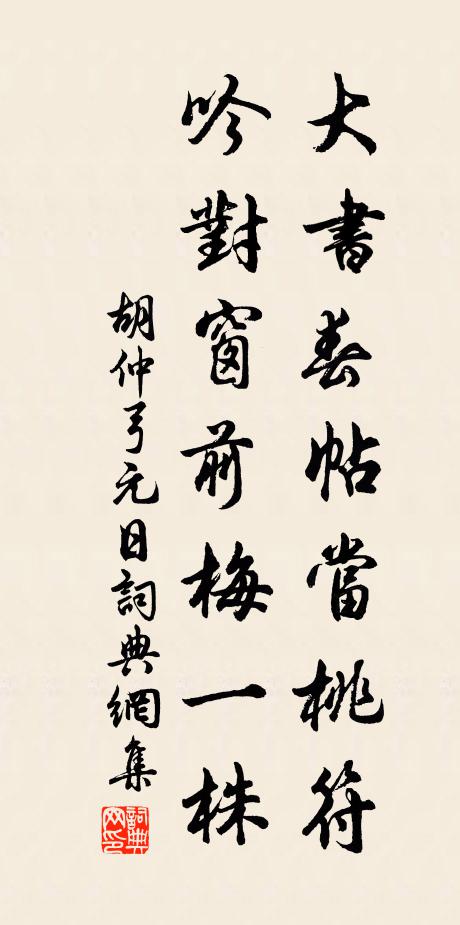 大書春帖當桃符
吟對窗前梅一株
胡仲弓元日詞典網集
詞典网印